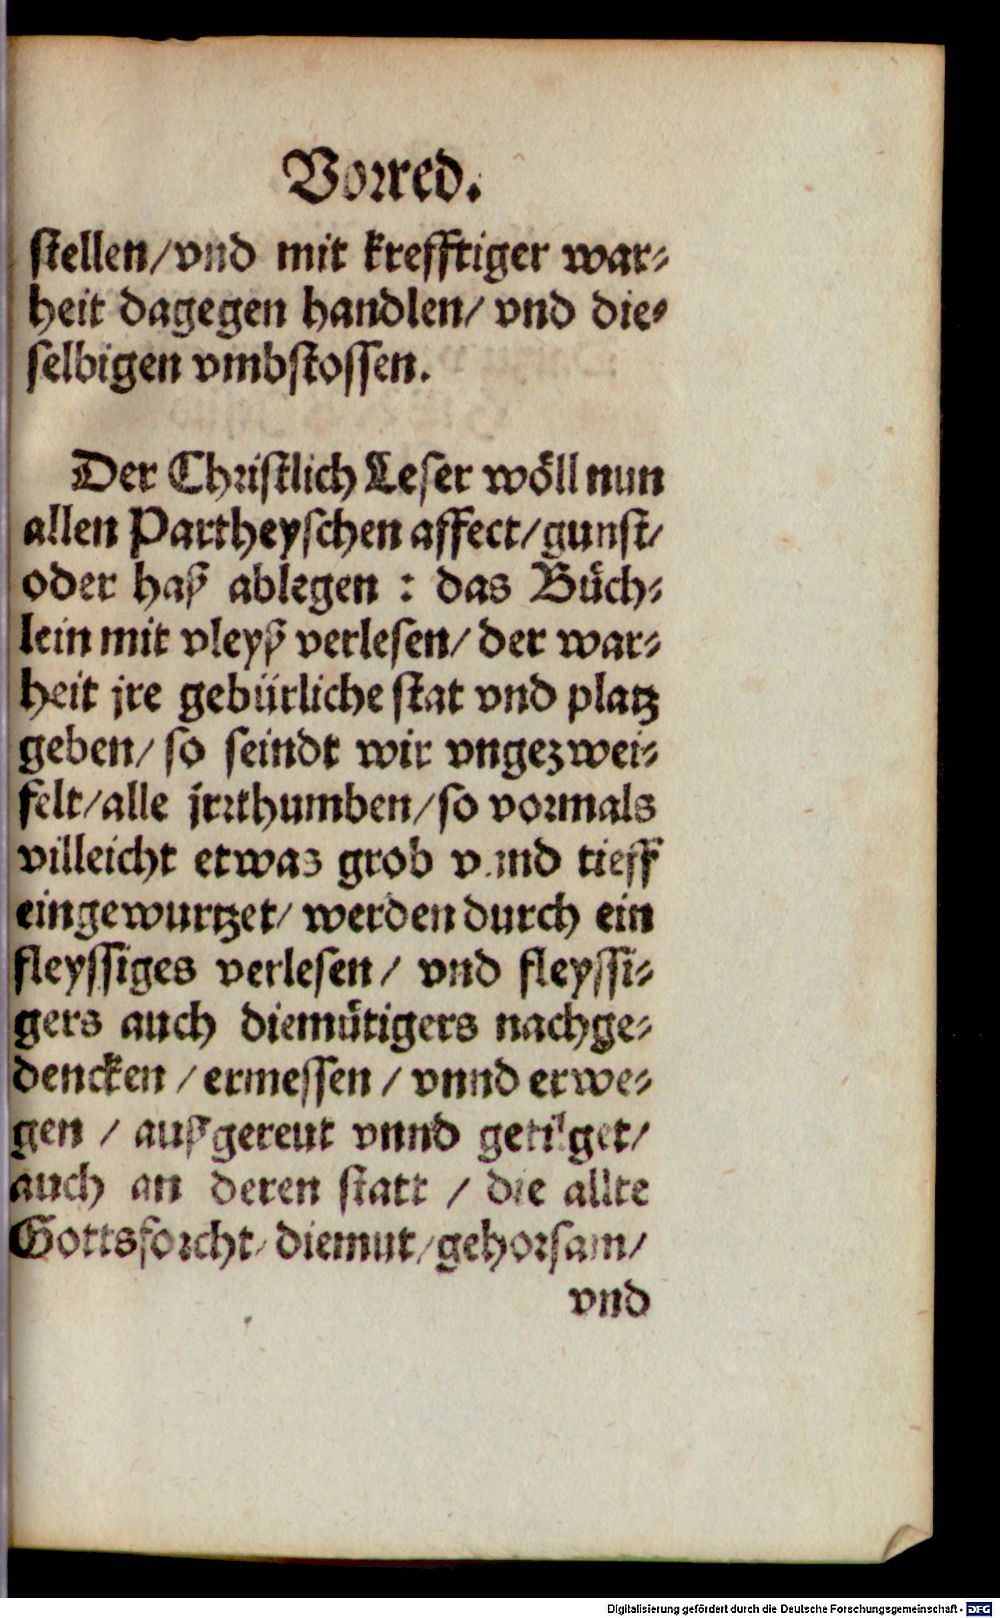 Vorred.
stellen/vnd mit krefftiger war⸗
heit dagegen handlen/ vnd die⸗
selbigen vmbstossen.
Der Christlich Leser wöll nun
allen Partheyschen affect/gunst/
oder haß ablegen : das Büch⸗
lein mit vleyß verlesen/ der war⸗
heit jre gebürliche stat vnd platz
geben/ so seindt wir vngezwei⸗
felt/alle jrrthumben/so vormals
villeicht etwas grob vnnd tieff
eingewurtzet/ werden durch ein
fleyssiges verlesen / vnd fleyssi⸗
gers auch diemütigers nachge⸗
dencken / ermessen / vnnd erwe⸗
gen / außgereut vnnd getilget/
auch an deren statt / die allte
Gottsforcht/ diemut/gehorsam/
vnd
Digitalisierung gefördert durch die Deutsche Forschungsgemeinschaft - DFG